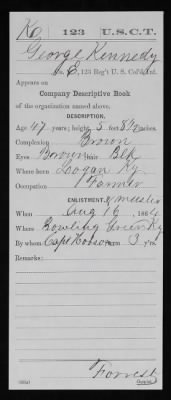 K. | 123 | U.S.C.T.
George Kennedy
Co. E, 123 Reg't U. S. Col'd Inf.
Appears on
Company Descriptive Book
of the organization named above.
DESCRIPTION.
Age 47 years; height 5 feet 8 1/2 inches.
Complexion Brown
Eyes Brown; hair Blk
Where born Logan Ky.
Occupation Farmer
ENLISTMENT. & muster
When Aug 16, 1864.
Where Bowling Green Ky
By whom Capt Hobson; term 3 y'rs.
Remarks:
Forrest
Copyist.